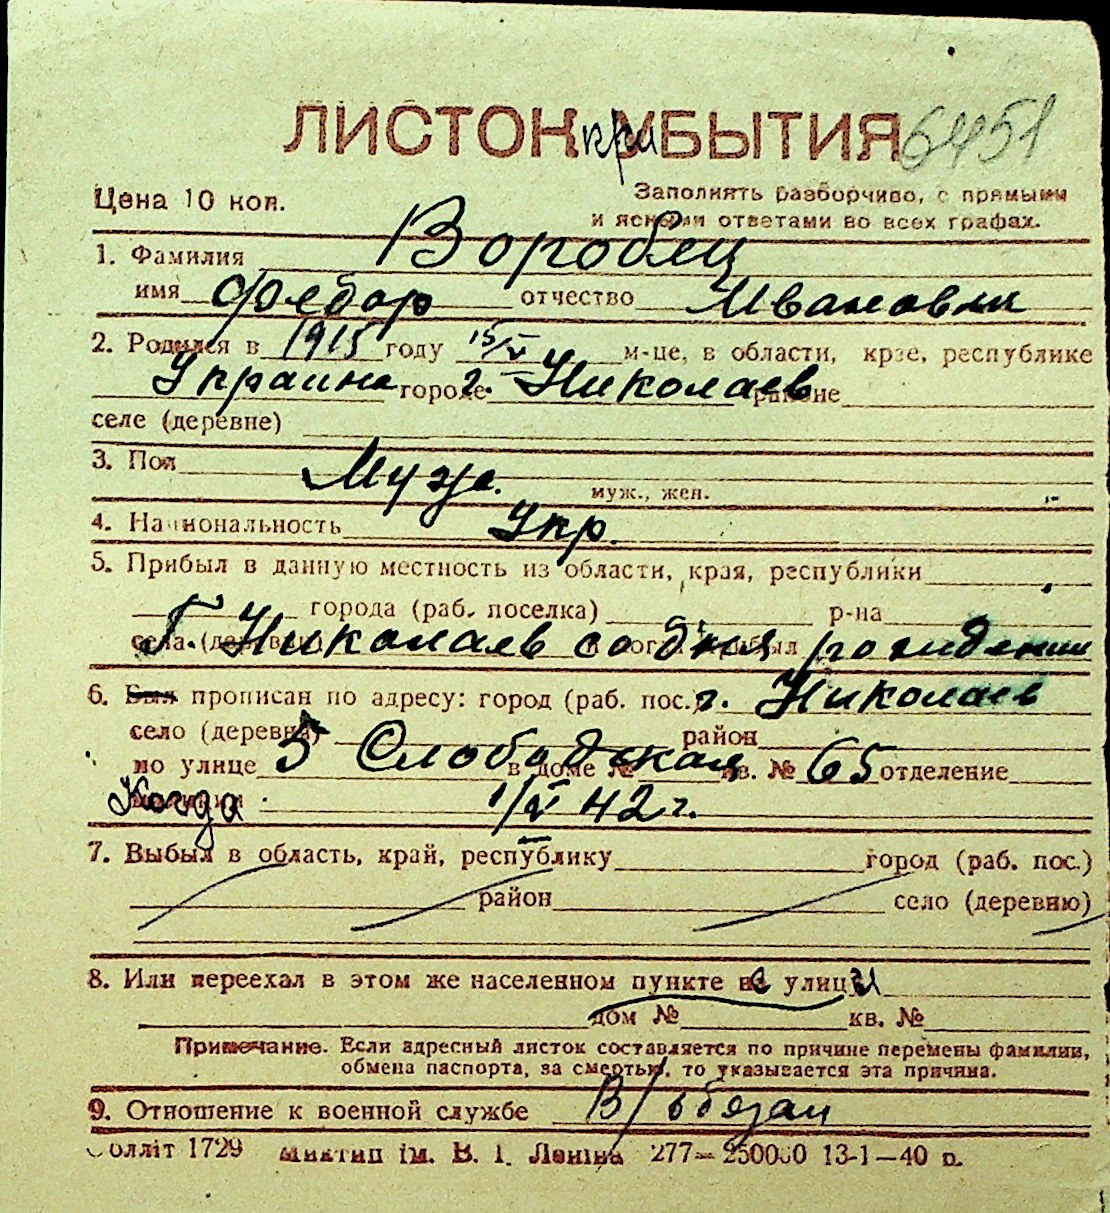 ЛИСТОК при УБЫТИЯ 6451
Цена 10 коп.
Заполнять разборчиво, с прямыми
и ясными ответами во всех графах.
1. Фамилия Воробец
имя Федор отчество Иванович
2. Родился в 1915 году 15/V м-це, в области, крае, республике
Украина городе г. Николаев районе
селе (деревне)
3. Пол Муж.
муж., жен.
4. Национальность Укр.
5. Прибыл в данную местность из области, края, республики
города (раб. поселка) р-на
села (деревни) Г. Николаев со дня рождения прибыл
6. Был прописан по адресу: город (раб. пос.) г. Николаев
село (деревня) район
по улице 5 Слободская в доме № кв. № 65 отделение
Когда 1/V 42 г.
7. Выбыл в область, край, республику город (раб. пос.)
район село (деревню)
8. Или переехал в этом же населенном пункте с улицы
дом № кв. №
Примечание. Если адресный листок составляется по причине перемены фамилии,
обмена паспорта, за смертью, то указывается эта причина.
9. Отношение к военной службе В/обязан
Облліт 1729 ім. В. І. Леніна 277— 250000 13-1—40 р.